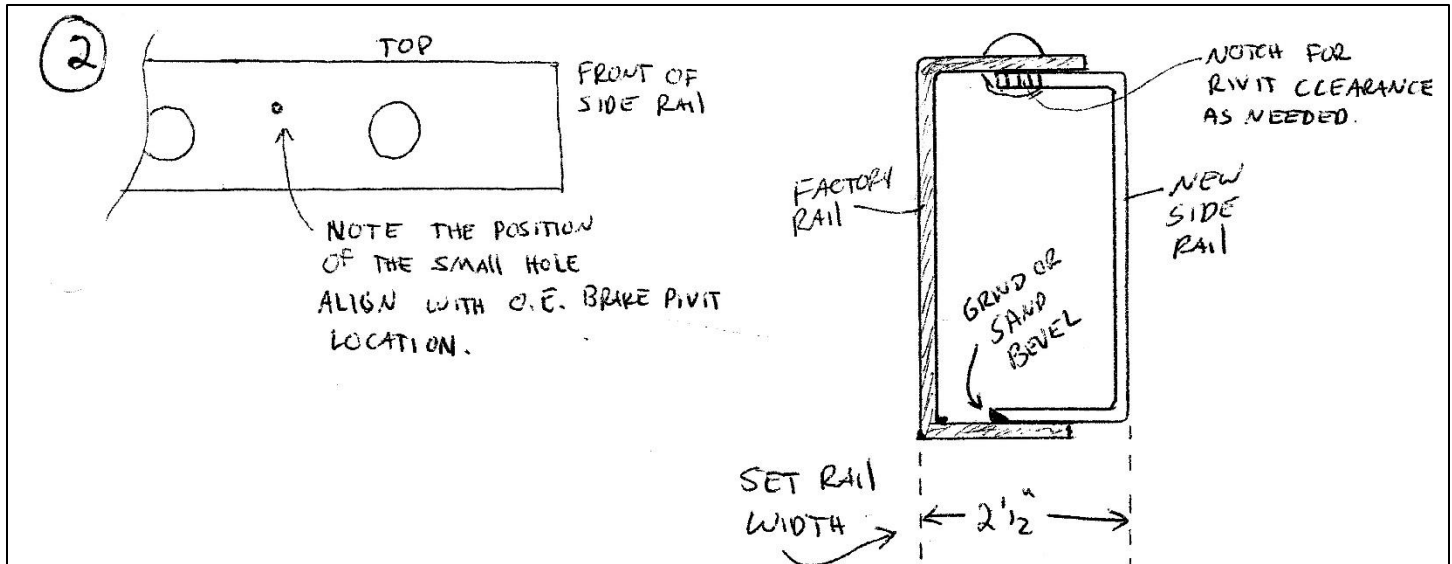 2
TOP
FRONT OF
SIDE RAIL
NOTE THE POSITION
OF THE SMALL HOLE
ALIGN WITH O.E. BRAKE PIVIT
LOCATION.
NOTCH FOR
RIVIT CLEARANCE
AS NEEDED.
FACTORY
RAIL
NEW
SIDE
RAIL
GRIND OR
SAND
BEVEL
SET RAIL
WIDTH
2 1/2"